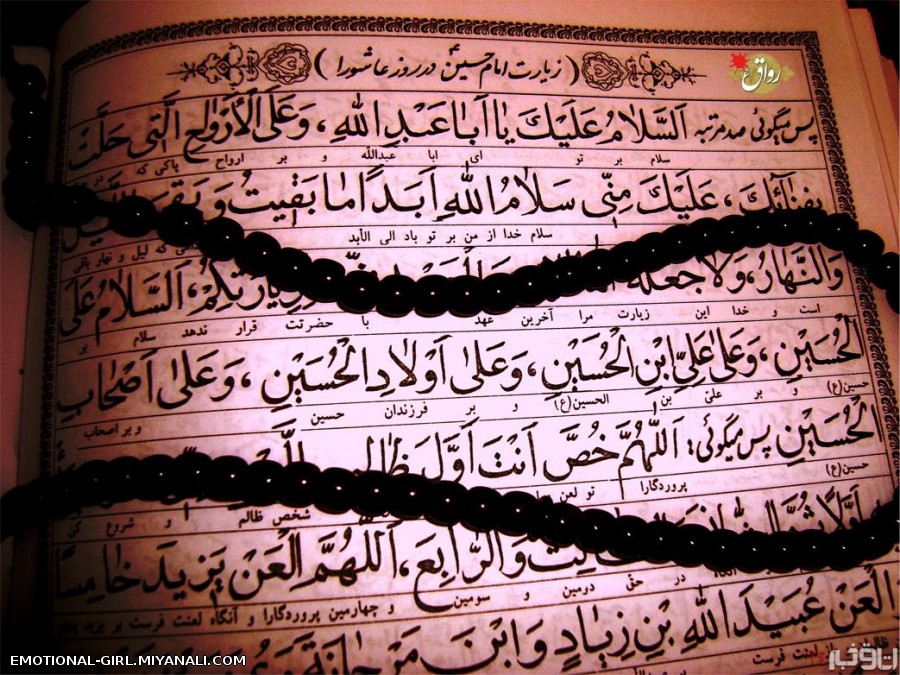 ( زیارت امام حسین ع در روز عاشورا )
رواق
پس میگوئی صد مرتبه اَلسَّلامُ عَلَیْكَ یا اَبا عَبْدِ اللهِ ، وَ عَلَی الْاَرْواحِ الَّتی حَلَّتْ
سلام بر تو ای ابا عبدالله و بر ارواح پاکی که در
بِفِنائِكَ ، عَلَیْكَ مِنّی سَلامُ اللهِ اَبَداً ما بَقیتُ وَ بَقِیَ اللَّیْلُ
سلام خدا از من بر تو باد الی الأبد که لیل و نهار باقی
وَ النَّهارُ ، وَلا جَعَلَهُ زِیارَتِکُمْ ، اَلسَّلامُ عَلَی
است و خدا این زیارت مرا آخرین عهد با حضرتت قرار ندهد سلام بر
الْحُسَیْنِ ، وَ عَلی عَلِیِّ ابْنِ الْحُسَیْنِ ، وَ عَلی اَوْلادِ الْحُسَیْنِ ، وَ عَلی اَصْحابِ
حسین(ع) و بر علیّ بن الحسین(ع) و بر فرزندان حسین و بر اصحاب
الْحُسَیْنِ پس میگوئی: اَللّهُمَّ خُصَّ اَنْتَ اَوَّلَ
حسین(ع) پروردگارا تو لعن شخص ظالم و شروع کن
وَ الرّابِعَ ، اَللّهُمَّ الْعَنْ یَزیدَ خامِسًا
در حق دومین و سومین و چهارمین پروردگارا و آنگاه لعنت فرست بر یزید
الْعَنْ عُبَیْدَ اللهِ بْنَ زِیادٍ وَ ابْنَ مَرْجانَةَ
لعنت فرست
EMOTIONAL-GIRL.MIYANALI.COM